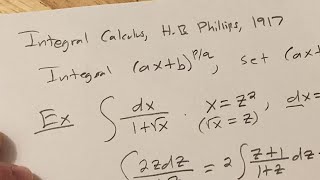 Integral Calculus, H.B Phillips, 1917
Integral (ax+b)^{p/q}, set (ax+
Ex ∫ dx/(1+√x) . x=z², dx=
(√x=z)
∫ 2zdz/ = 2∫ (z+1)/(1+z) dz